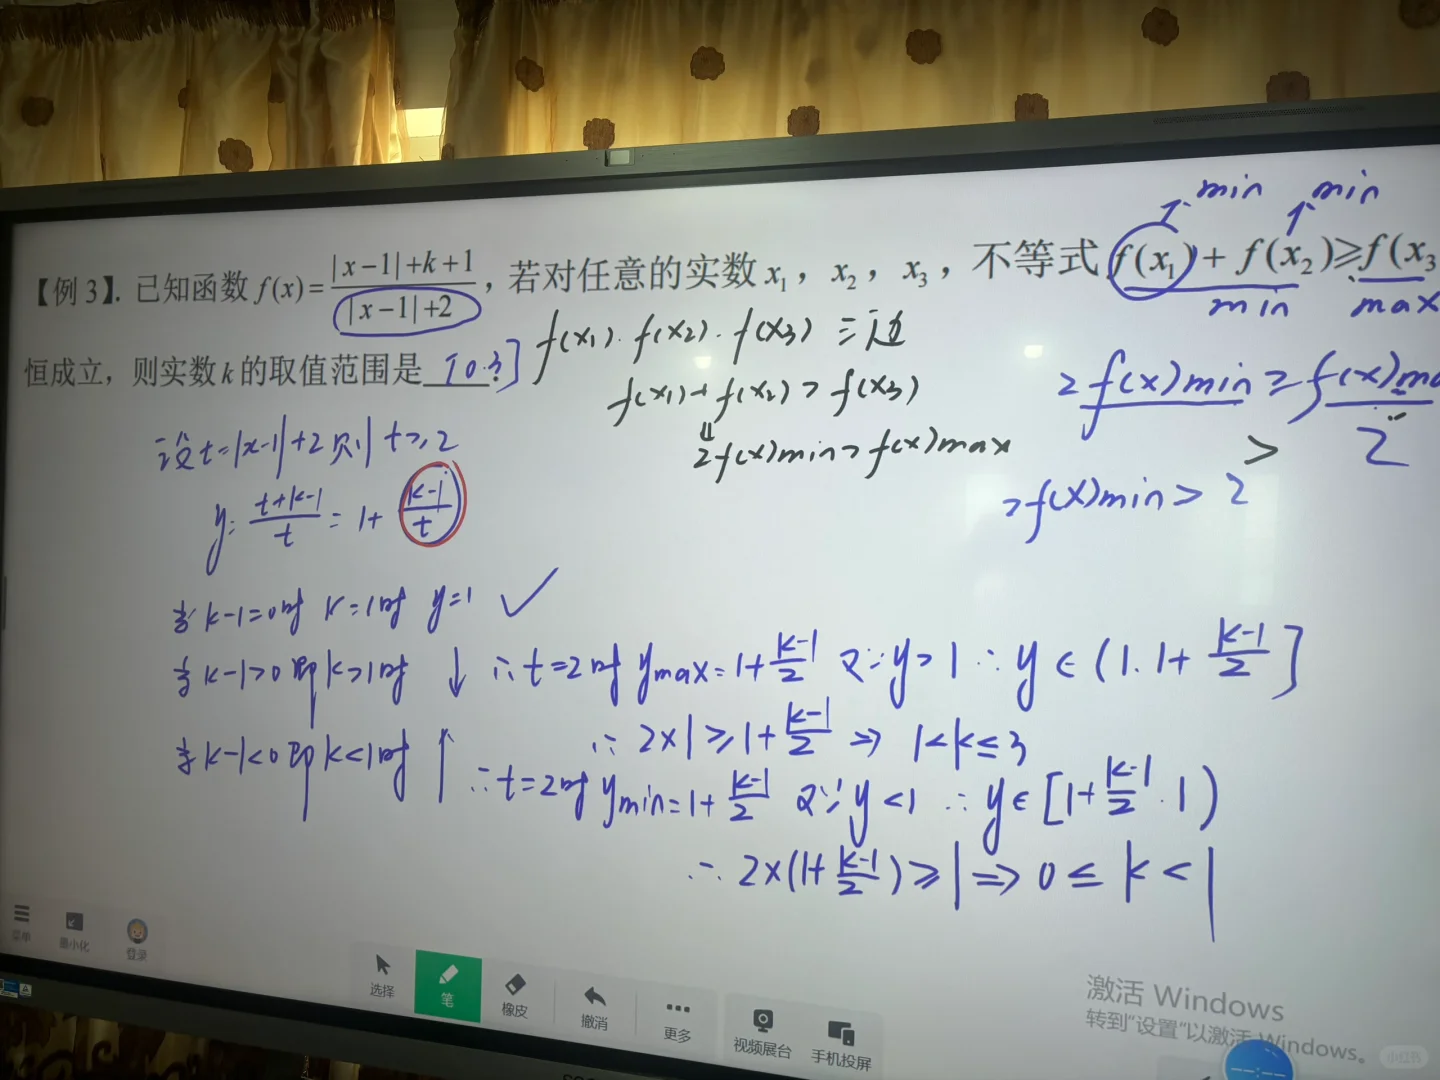 【例 3】. 已知函数 f(x) = (|x-1|+k+1)/(|x-1|+2), 若对任意的实数 x₁, x₂, x₃, 不等式 f(x₁)+f(x₂)≥f(x₃
min min
min max
恒成立, 则实数 k 的取值范围是 [0.3] .
f(x1). f(x2). f(x3) 三边
f(x1)+f(x2)>f(x3)
⇓
2f(x)min>f(x)max
2f(x)min≥f(x)ma
> 2
2f(x)min>2
设t=|x-1|+2 则 t≥2
y=(t+k-1)/t=1+(k-1)/t
当 k-1=0时 k=1时 y=1 ✓
当 k-1>0 即k>1时 ↓ ∴t=2时 ymax=1+(k-1)/2 又∵y>1 ∴y∈(1.1+(k-1)/2]
∴ 2×1≥1+(k-1)/2 ⇒ 1<k≤3
当 k-1<0 即k<1时 ↑ ∴t=2时 ymin=1+(k-1)/2 又∵y<1 ∴y∈[1+(k-1)/2.1)
∴ 2×(1+(k-1)/2)≥1⇒0≤k<1
菜单
最小化
登录
选择
笔
橡皮
撤消
更多
视频展台
手机投屏
激活 Windows
转到"设置"以激活 Windows。
小红书